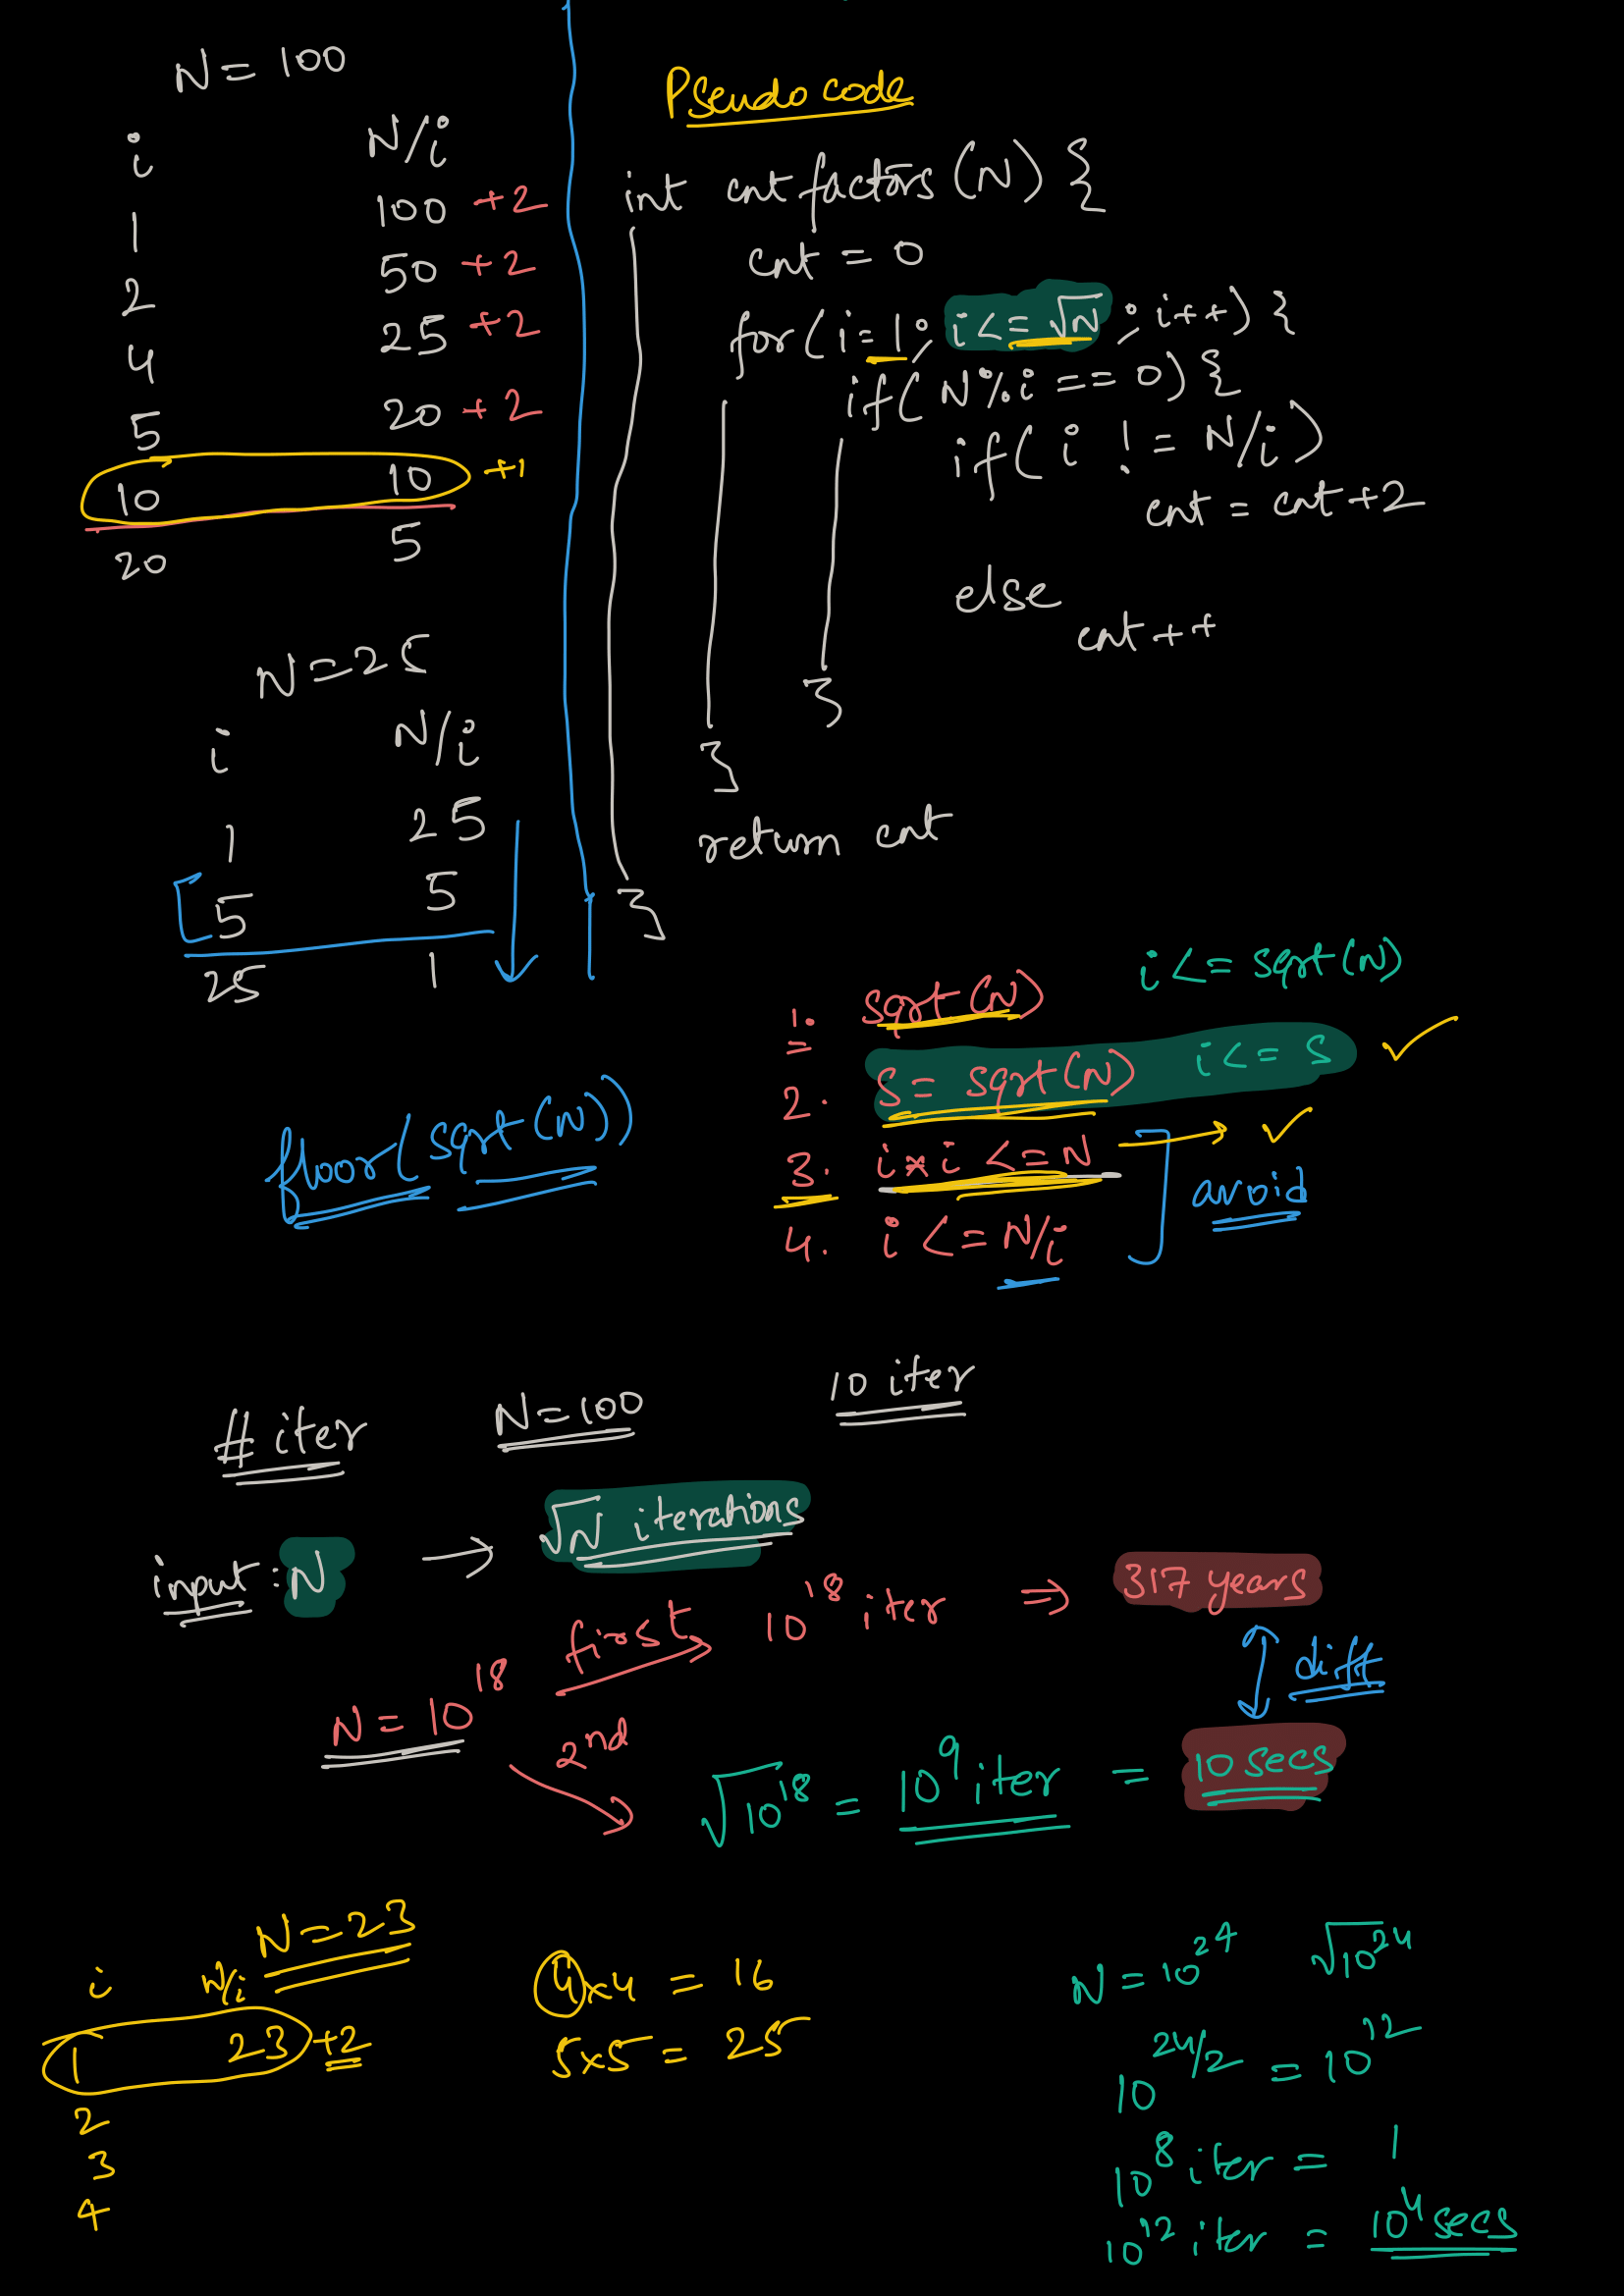 N = 100
i N/i
1 100 +2
2 50 +2
4 25 +2
5 20 +2
10 10 +1
20 5
N = 25
i N/i
1 25
5 5
25 1
Pseudo code
int cntfactors (N) {
cnt = 0
for( i = 1 ; i <= √N ; i++) {
if( N % i == 0) {
if( i != N/i )
cnt = cnt + 2
else
cnt ++
}
}
return cnt
}
floor( sqrt (N))
1. sqrt (N) i <= sqrt (N)
2. S = sqrt (N) i <= S ✓
3. i * i <= N → ✓
4. i <= N/i ] avoid
# iter N = 100 10 iter
input : N → √N iterations
N = 10^18 first → 10^18 iter ⇒ 317 years
diff
2nd √10^18 = 10^9 iter = 10 secs
N = 23
i N/i
1 23 +2
2
3
4
4×4 = 16
5×5 = 25
N = 10^24 √10^24
10^24/2 = 10^12
10^8 iter = 1
10^12 iter = 10^4 secs